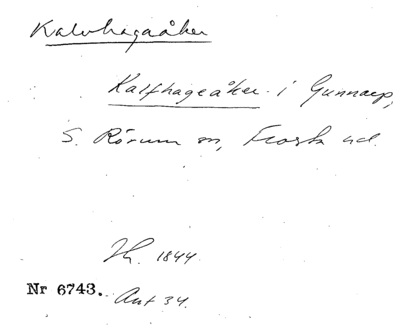 Kalvhagaåker
Kalfhageåker i Gunnarp,
S. Rörum sn, Frosta hd.
Th. 1844
Nr 6743. Ant 34.